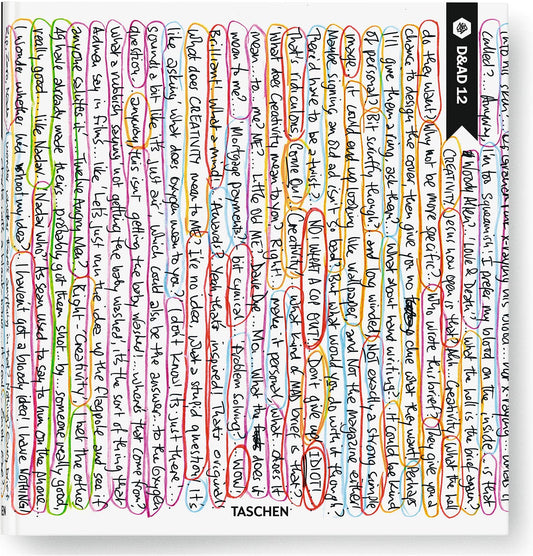 D&AD 12
called?... Anyway, I'm to squeamish. I prefer my blood on the inside... is that
Woody Allen?.. 'Love & Death'? What the hell is the brief again?
CREATIVITY.. Jesus how open is that? Ahh.. Creativity, what the hell
do they want? Why not be more specific? Who wrote this brief? They give you a
chance to design the cover then give you no clue what they want! Perhaps
I'll give them a ring, ask them?. What about hand writing? You know the kind
of personal? (Bit scruffy though) and long winded. Not exactly a strong simple
image. It could end up looking like wallpaper, and not the magazine either!
Maybe signing an old ad isn't so bad, but what would you do with it though?
There'd have to be a twist?. NO, WHAT A COP OUT! Don't give up! IDIOT!
That's ridiculous! Come On! Creativity! What kind of MAD brief is that?
What does creativity mean to you. Right.. make it personal, what does it
mean...to...me? ME?.. Little Old ME? Dave Dye. Mr. What does it
mean to me?. Mortgage payments? bit cynical. Problem solving? NO!
Brilliant! What a mind! Awards? Yeah that's inspired! That's original!
What does CREATIVITY mean to ME? I've no idea. What a stupid question! It's
like asking 'what does oxygen mean to you.' I don't know! It's just there...
sounds a bit like it's just air, which could also be the answer to the oxygen
question, anyway this isn't getting the baby washed... where'd that come from?
what a rubbish saying 'not getting the baby washed', it's the sort of thing that
Adman say in films.. like 'let's just the idea up the flagpole and see if
anyone salutes it'... Twelve Angry Men? Right - Creativity! I bet the other
have already wrote theirs.. probably got them shot... by someone really good,
really good... like Nadav! Nadav who? As Sean used to say to him on the phone...
wonder whether my idea? I haven't got a bloody idea! I have NOTHING!
TASCHEN